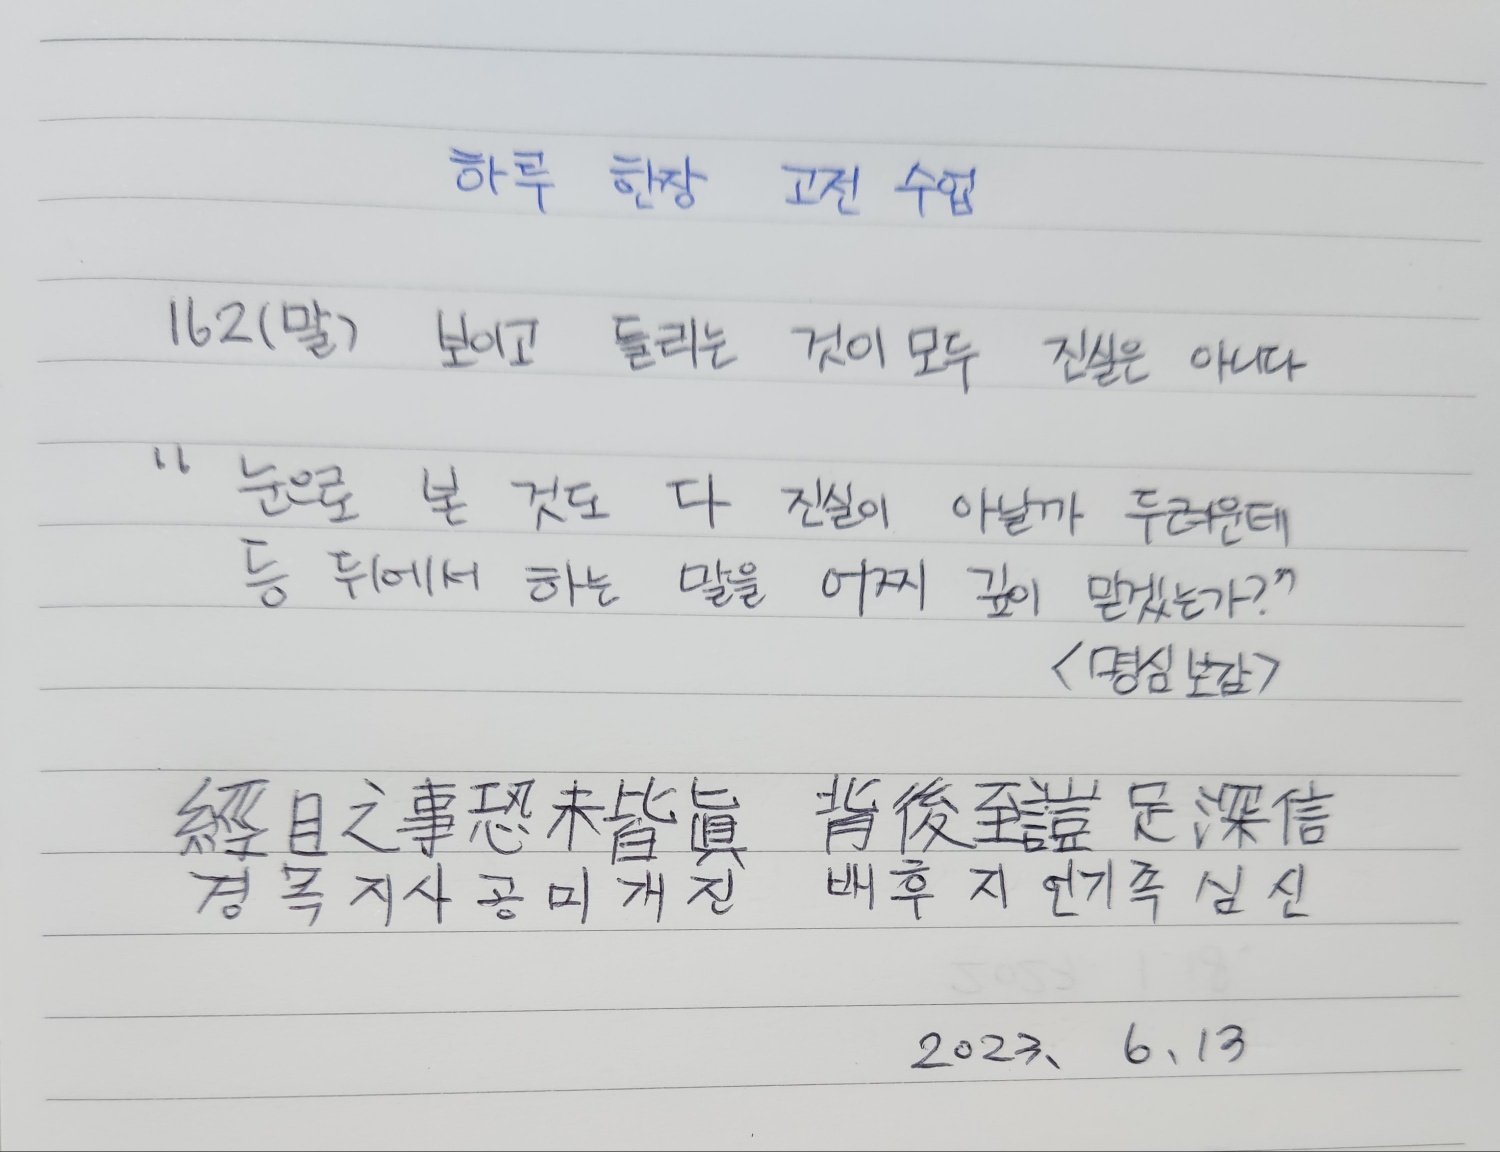 하루 한장 고전 수업
162(말) 보이고 들리는 것이 모두 진실은 아니다
"눈으로 본 것도 다 진실이 아닐까 두려운데
등 뒤에서 하는 말을 어찌 깊이 믿겠는가?"
<명심보감>
經目之事恐未皆眞 背後至豈足深信
경목지사공미개진 배후지언기족심신
2023. 6.13